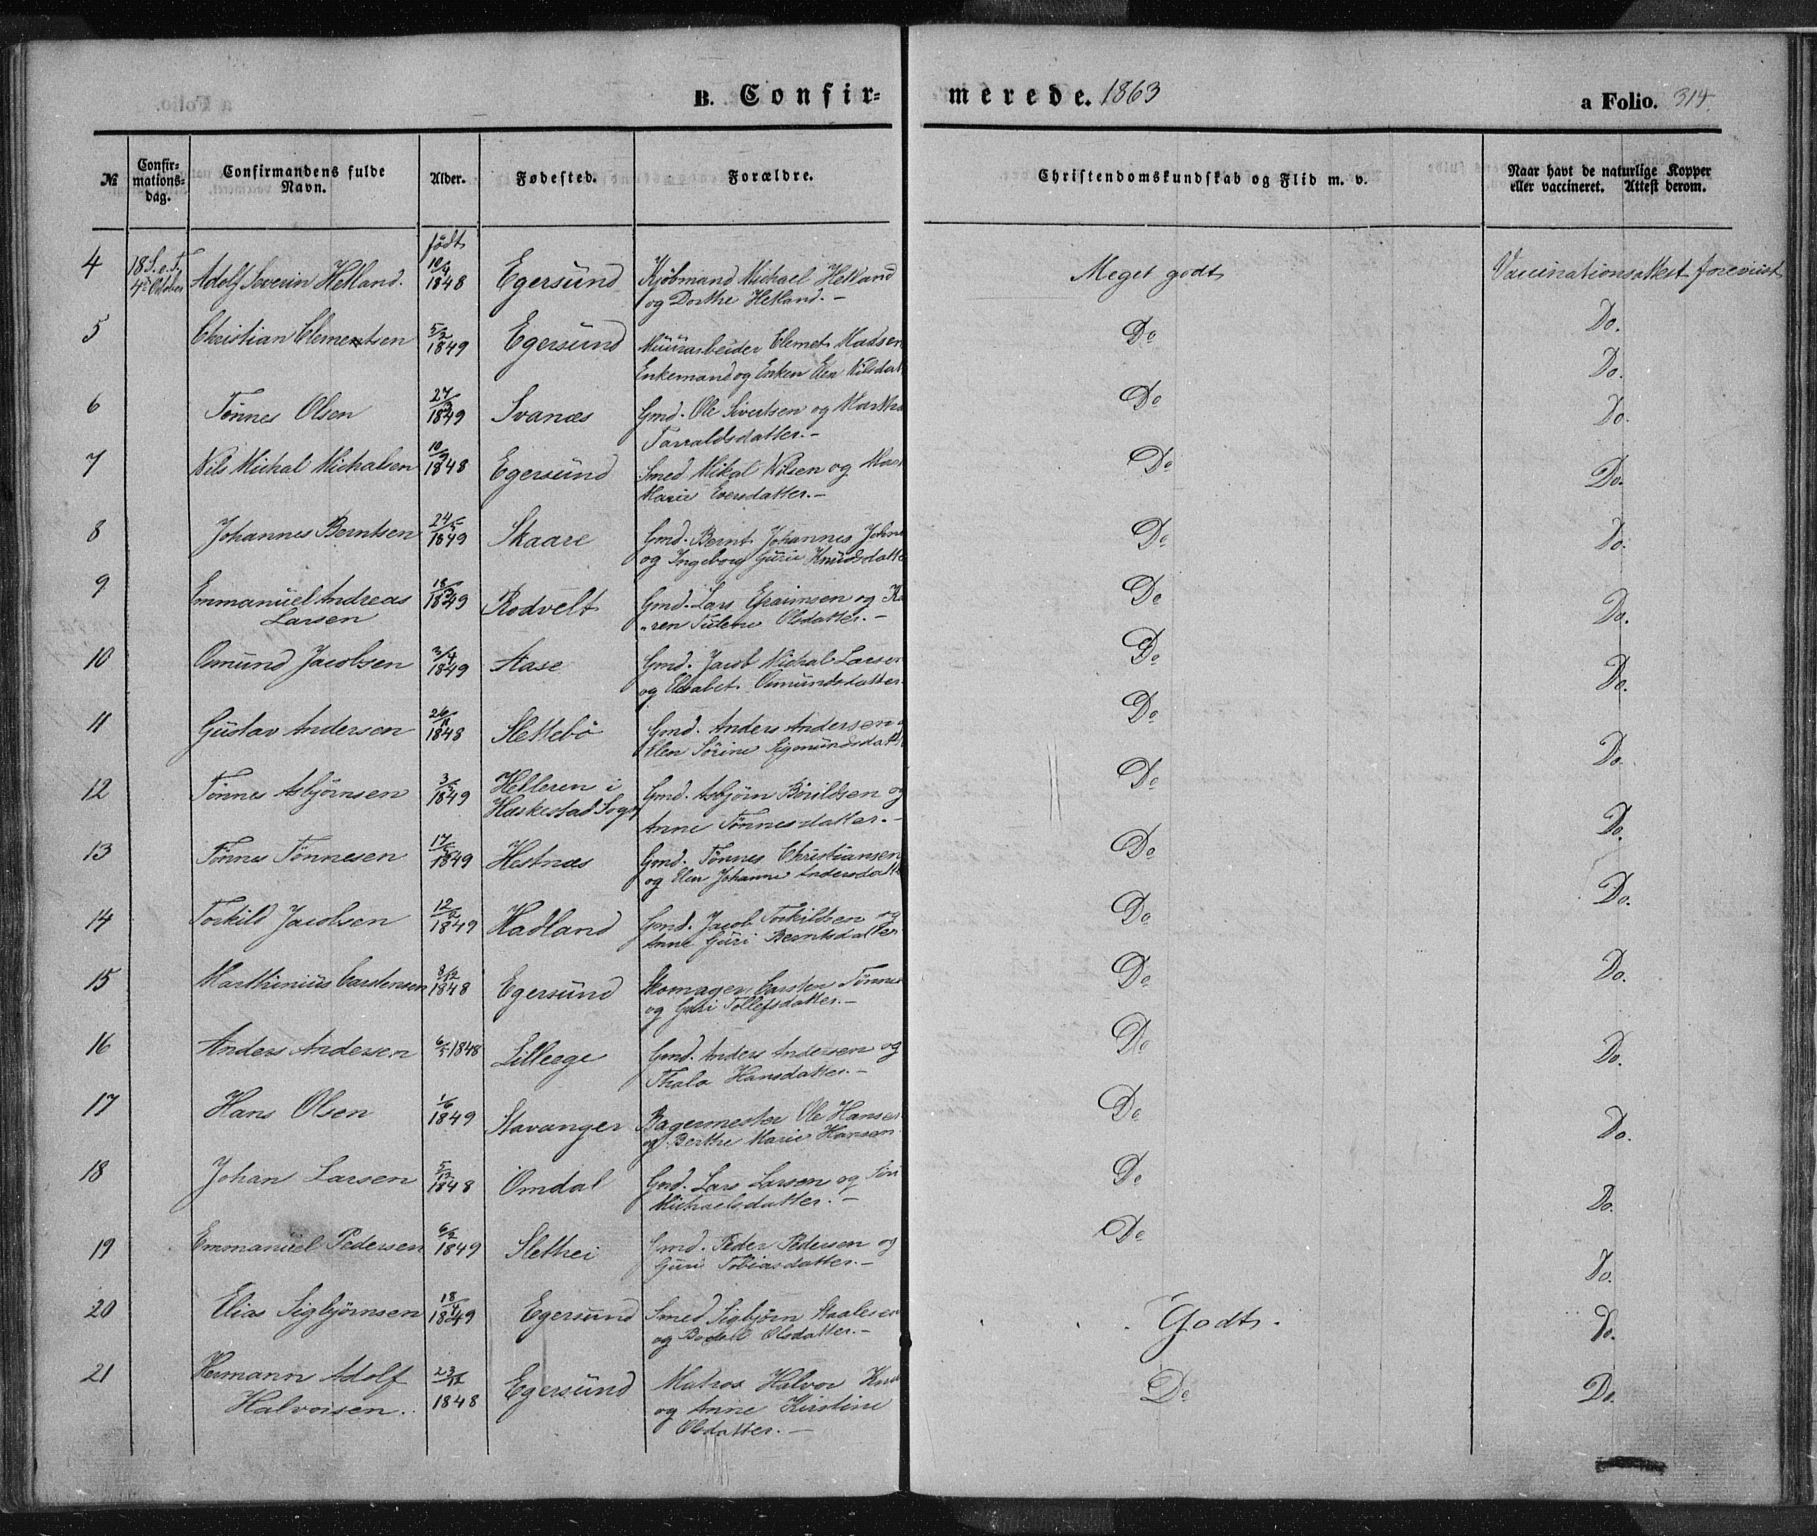 B. Confir- merede. 1863 a Folio. 314.
№ Confir-mations-dag. Confirmandens fulde Navn. Alder. Fødested. Forældre. Christendomskundskab og Flid m. v. Naar havt de naturlige Kopper eller vaccineret. Attest derom.
født
4 18 S. e. T. Adolf Severin Hetland. 10/9 Egersund Kjøbmand Michael Hetland Meget godt Vaccinationsattest forevist
4de October 1848 og Dorthe Hetland.-
5 Christian Clementsen 5/2 Egersund Muurarbeider Clemet Madsen Do Do.
1849 Enkemand og Enken Elen Nilsdat
6 Tønnes Olsen 27/3 Svanæs Gmd. Ole Sivertsen og Martha Do Do.
1849 Tarraldsdatter.-
7 Nils Michal Michalsen 10/9 Egersund Smed Mikal Nilsen og Do Do.
1848 Marie Eversdatter.-
8 Johannes Berntsen 24/5 Skaare Gmd. Bernt Johannes Johns Do Do.
1849 og Ingeborg Gurie Knudsdatte
9 Emmanuel Andreas 18/ Rodvelt Gmd. Lars Efraimsen og Ka Do Do.
Larsen 1849 "ren Tulene Olsdatter.-
10 Omund Jacobsen 3/4 Aase Gmd. Jacob Michal Larsen Do Do.
1849 og Elisabet Omundsdatter.
11 Gustav Andersen 26/11 Slettebø Gmd. Anders Andersen Do Do.
1848 Elen Sørine Sigmundsdatt
12 Tønnes Asbjørnsen 3/2 Helleren i Gmd. Asbjørn Børildsen og Do Do.
1849 Heskestad Sogn Anne Tønnesdatter.-
13 Tønnes Tønnesen 17/ Hestnæs Gmd. Tønnes Christiansen Do Do.
1849 og Elen Johanne Andersdatte
14 Torkild Jacobsen 12/2 Hadland Gmd. Jacob Torkildsen og Do Do.
1849 Anne Guri Berntsdatter
15 Marthinius Carstensen 3/12 Egersund Skomager Carsten Tønnes Do Do.
1848 og Guri Tollefsdatter.-
16 Anders Andersen 6/5 1848 Lilleege Gmd. Anders Andersen og Do Do.
Thala Hansdatter.-
17 Hans Olsen 1/6 Stavanger Bagermester Ole Hansen Do Do.
1849 og Berthe Marie Hansen
18 Johan Larsen 5/12 Omdal Gmd. Lars Larsen og Siri Do Do.
1848 Michaelsdatter.-
19 Emmanuel Pedersen 6/2 Slethei Gmd. Peder Pedersen og Do Do.
1849 Guri Tobiasdatter.-
20 Elias Sigbjørnsen 18/4 Egersund Smed Sigbjørn Staalesen Godt. Do.
1849 og Bodell Olsdatter.-
21 Hermann Adolf 23/12 Egersund Matros Halvor Knu Do Do.
Halvorsen. 1848 og Anne Kirstine
Olsdatter.-